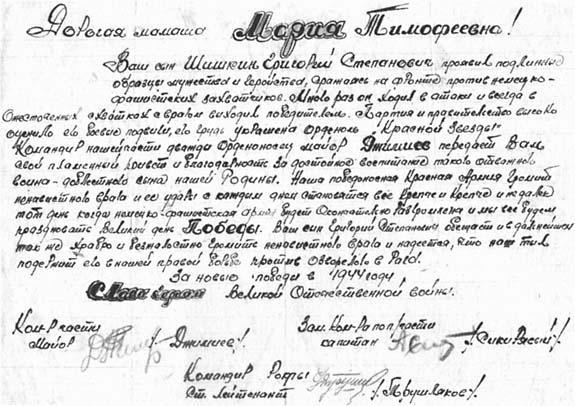 Дорогая мамаша Мария Тимофеевна!
Ваш сын Шишкин Григорий Степанович проявил подлинные
образцы мужества и геройства, сражаясь на фронте против немецко-
фашистских захватчиков. Много раз он ходил в атаки и всегда в
ожесточенных схватках с врагом выходил победителем. Партия и правительство высоко
оценило его боевые подвиги, его грудь украшена Орденом "Красной Звезды"
Командир нашей части дважды Орденоносец майор Джилиев передает Вам
свой пламенный привет и благодарность за достойное воспитание такого отважного
воина - доблестного сына нашей Родины. Наша победоносная Красная Армия громит
ненавистного врага и ее удары с каждым днем становятся все крепче и крепче и недалек
тот день когда немецко-фашистская армия будет окончательно разгромлена и мы все будем
праздновать Великий день Победы. Ваш сын Григорий Степанович обещает и в дальнейшем
так же храбро и безжалостно громить ненавистного врага и надеется, что наш тыл
поддержит его в нашей правой борьбе против озверелого врага!
За новые победы в 1944 году
Слава героям Великой Отечественной войны.
Ком-р части
майор /Джилиев/.
Зам. Ком-ра по п/части
капитан
Командир роты
Ст. лейтенант